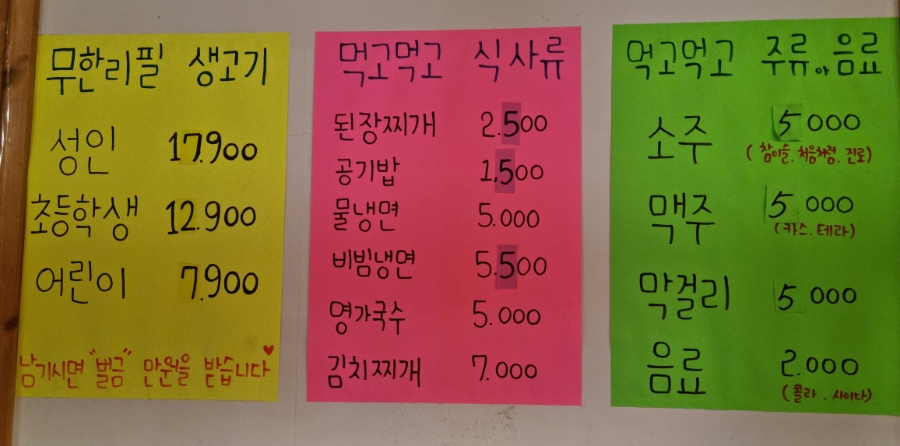 무한리필 생고기
성인 17.900
초등학생 12.900
어린이 7.900
남기시면 "벌금" 만원을 받습니다♥
먹고먹고 식사류
된장찌개 2.500
공기밥 1,500
물냉면 5.000
비빔냉면 5.500
명가국수 5.000
김치찌개 7.000
먹고먹고 주류 아 음료
소주 5000
(참이슬.처음처럼.진로)
맥주 5.000
(카스.테라)
막걸리 5000
음료 2.000
(콜라.사이다)